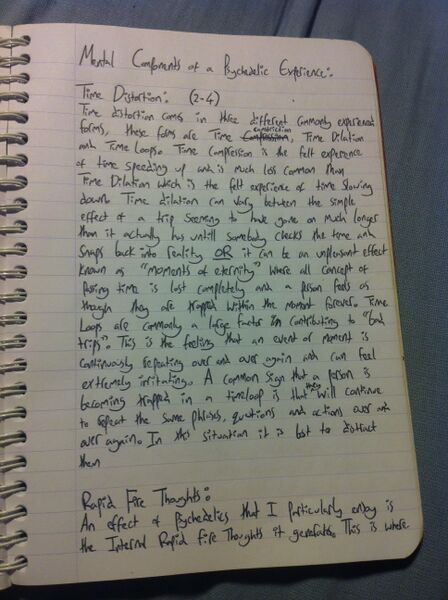 Mental Components of a Psychedelic Experience:
Time Distortion: (2-4)
Time distortion comes in three different commonly experienced
forms, these forms are Time Compression, Time Dilation
and Time Loops. Time Compression is the felt experience
of time speeding up and is much less common than
Time Dilation which is the felt experience of time slowing
down. Time dilation can vary between the simple
effect of a trip seeming to have gone on much longer
than it actually has untill somebody checks the time and
snaps back into reality OR it can be an unpleasant effect
known as "moments of eternity" where all concept of
passing time is lost completely and a person feels as
though they are trapped within the moment forever. Time
Loops are commonly a large factor in contributing to "bad
trips". This is the feeling that an event or moment is
continuously repeating over and over again and can feel
extremely irritating. A common sign that a person is
becoming trapped in a timeloop is that they will continue
to repeat the same phrases, questions and actions over and
over again. In this situation it is best to distract
them
Rapid Fire Thoughts:
An effect of Psychedelics that I particularly enjoy is
the Internal Rapid Fire Thoughts it generates. This is where